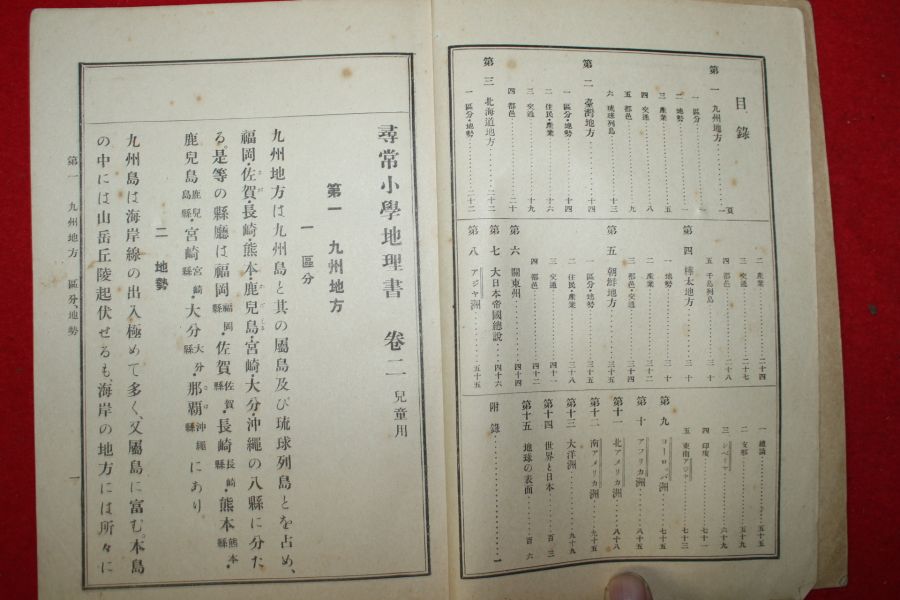 目錄
第一 九州地方……一頁
一 區分……一
二 地勢……一
三 產業……五
四 交通……八
五 都邑……九
六 琉球列島……十三
第二 臺灣地方……十四
一 區分・地勢……十四
二 住民・產業……十六
三 交通……十九
四 都邑……二十
第三 北海道地方……二十二
一 區分・地勢……二十二
二 產業……二十四
三 交通……二十七
四 都邑……二十八
五 千島列島……三十
第四 樺太地方……三十
一 地勢……三十
二 產業……三十二
三 都邑・交通……三十四
第五 朝鮮地方……三十五
一 區分・地勢……三十五
二 住民・產業……三十八
三 交通……四十
四 都邑……四十二
第六 關東州……四十四
第七 大日本帝國總說……四十六
第八 アジヤ洲……五十五
一 總論……五十五
二 支那……五十九
三 シベリヤ……六十九
四 印度……七十一
五 東南アジヤ……七十三
第九 ヨーロッパ洲……七十五
第十 アフリカ洲……八十五
第十一 北アメリカ洲……八十八
第十二 南アメリカ洲……九十五
第十三 大洋洲……九十九
第十四 世界と日本……百三
第十五 地球の表面……百六
附錄……一
尋常小學地理書 卷二 兒童用
第一 九州地方
一 區分
九州地方は九州島と其の屬島及び琉球列島とを占め、
福岡・佐賀・長崎・熊本・鹿兒島・宮崎・大分・沖繩の八縣に分た
る。是等の縣廳は福岡福岡縣・佐賀佐賀縣・長崎長崎縣・熊本熊本縣・
鹿兒島鹿兒島縣・宮崎宮崎縣・大分大分縣・那覇沖繩縣にあり
二 地勢
九州島は海岸線の出入極めて多く、又屬島に富む。本島
の中には山岳丘陵起伏せるも、海岸の地方には所々に
第一 九州地方 區分、地勢
一